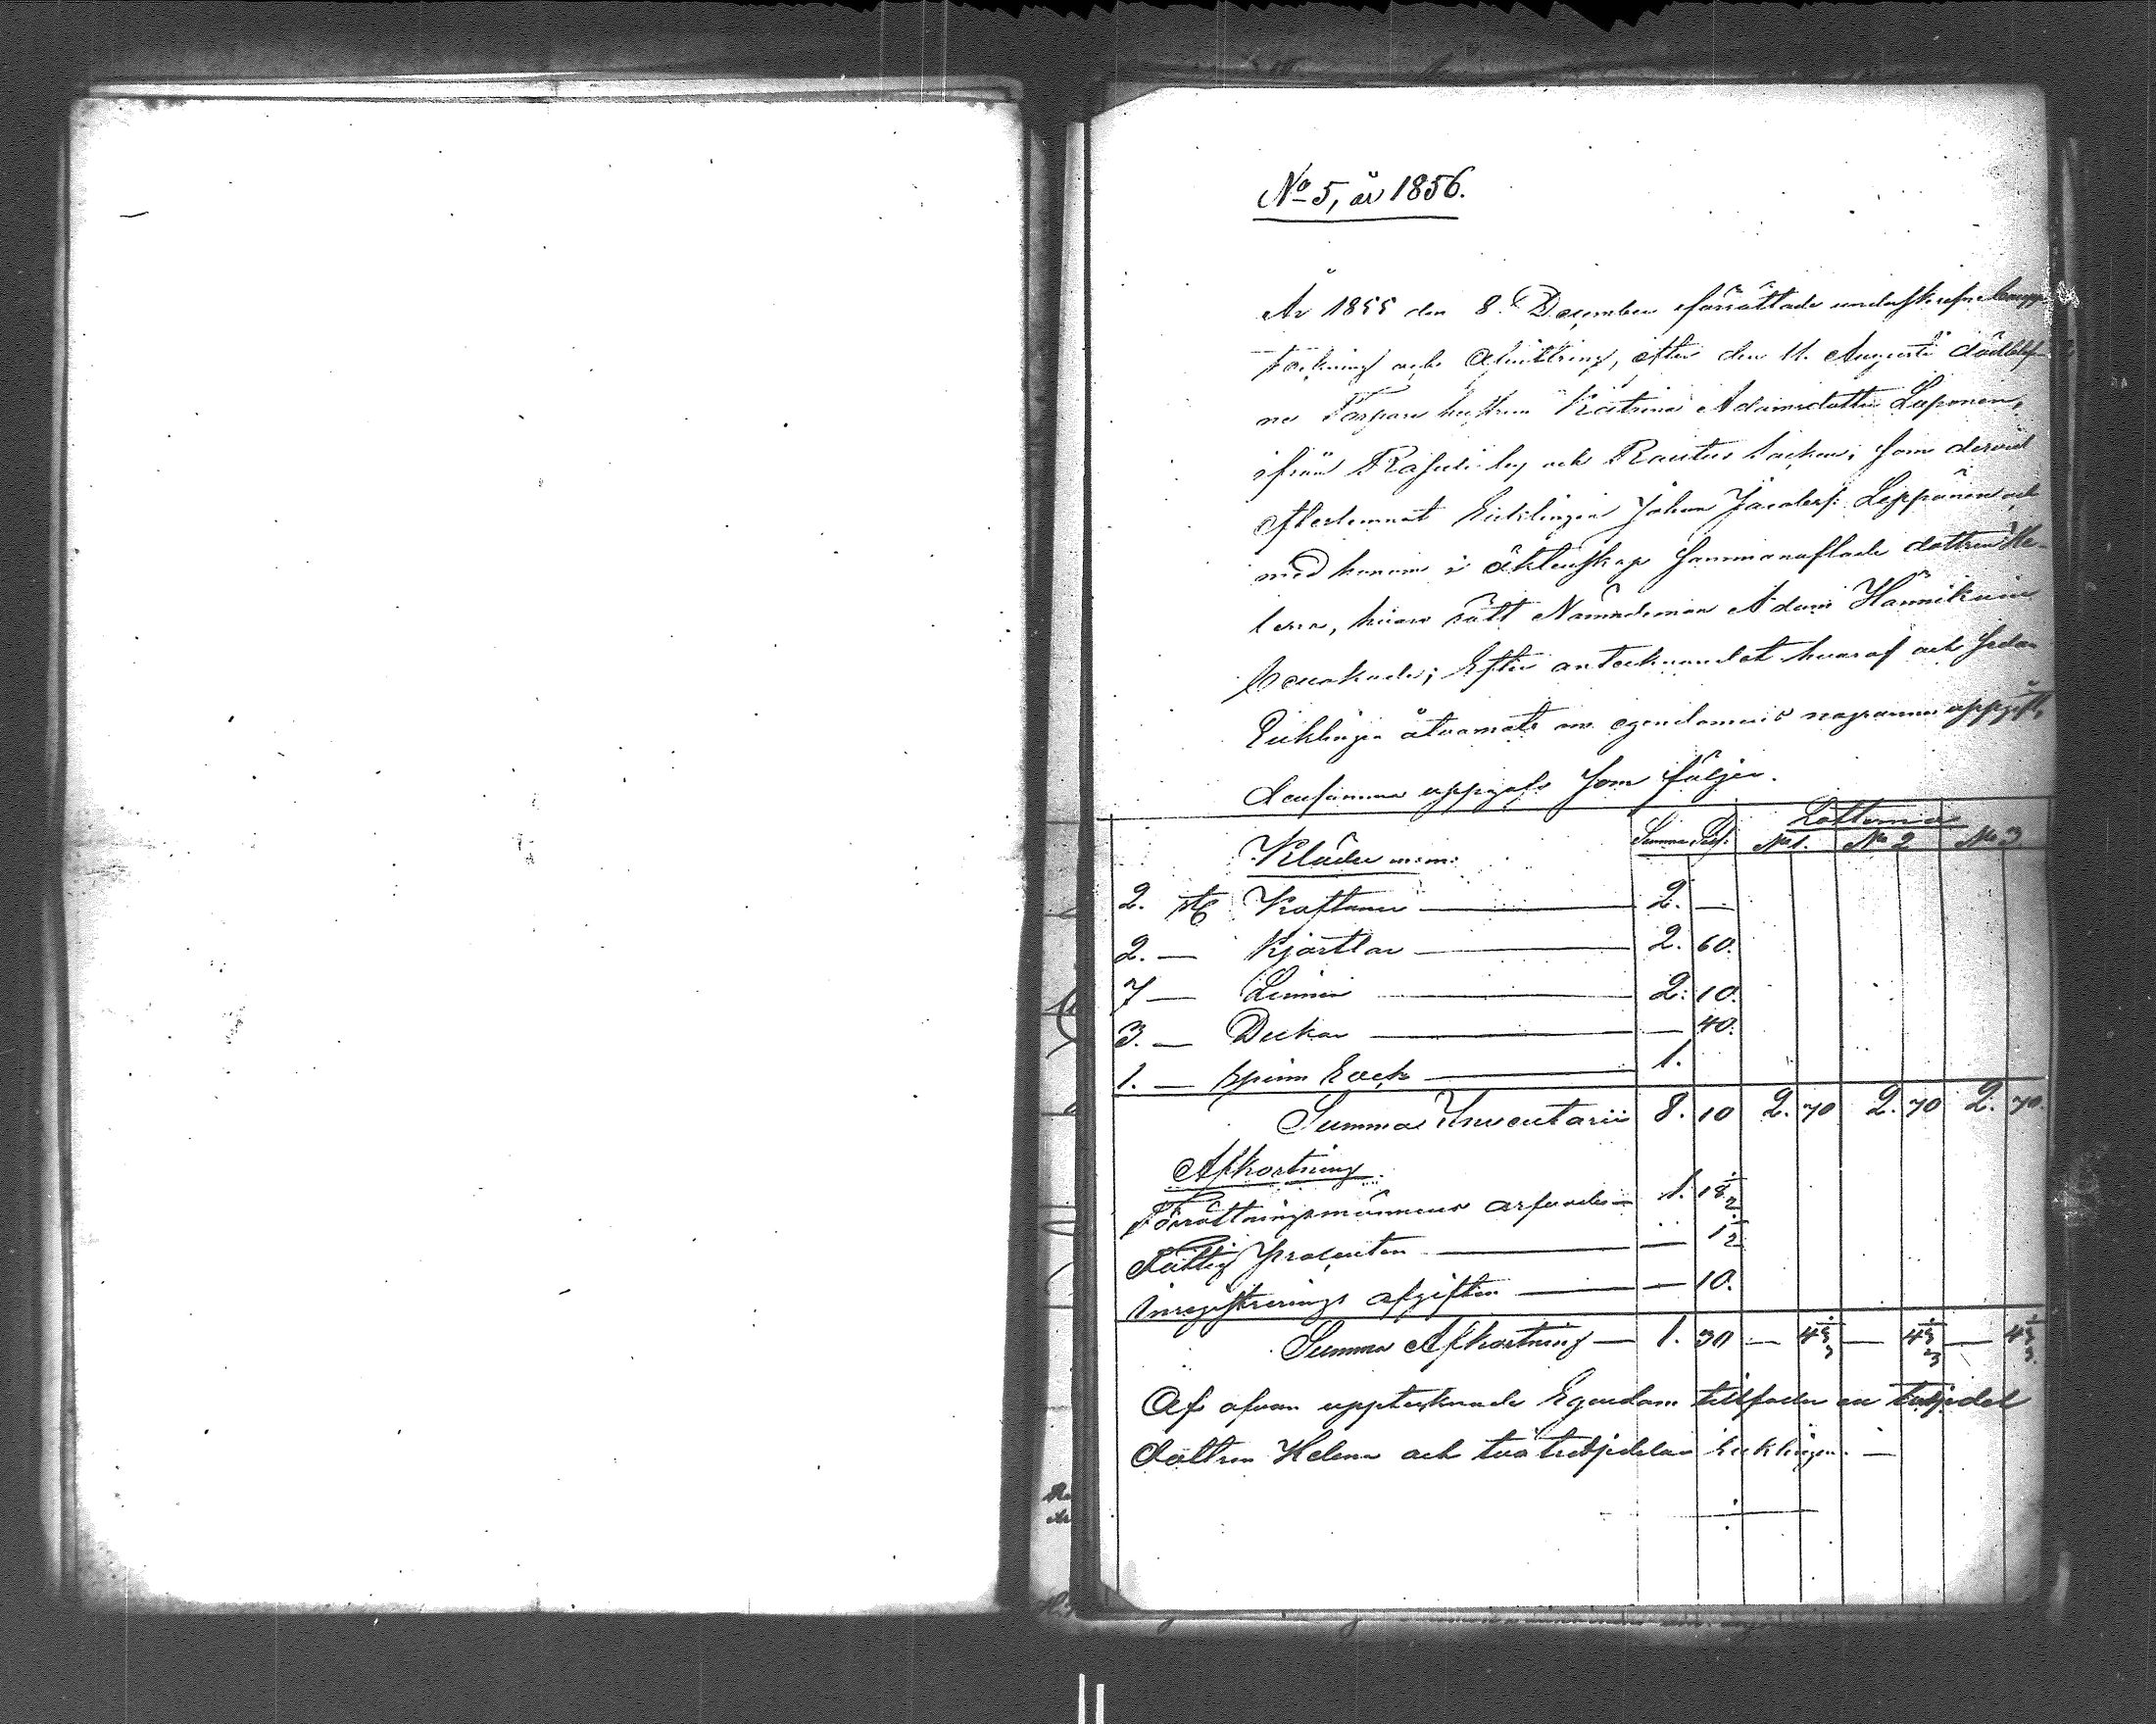 No 5, år 1856.
År 1855 den 8. December förrättade underskrefne boupp-
tekning och afvittring, efter den 11. Augusti dödblef-
ne Torpare hustrun Katrina Adamsdotter Laponen,
ifrån Rafuli by och Rautus Socken; som dervid
efterlemnat Enklingen Johan Jacobsf: Leppänen och
med honom i äktenskap sammanaflade dottren He-
lena, hvars rätt Nämndeman Adam Hännikäin
bevakade; Efter antecknandet hvaraf och sedan
Enklingen åtvarnats om egendomens noganna uppgift,
densamma uppgafs som följer.
Kläder m:m: Summa Silf: Lotterna
No 1. No 2 No 3
2. st Kaftaner — 2. —
2. — Kjortlar — 2. 60.
7 — Linnen — 2. 10.
3. — Dukar — — 40.
1. — Spinn Rock — 1.
Summa Inventarii 8. 10 2. 70 2. 70 2. 70.
Afkortning.
Förrättningsmännens arfvode — 1. 18 1/2
Fattig Procenten — — 1 1/2
Inregistrerings afgiften — — 10.
Summa Afkortning — 1. 30 — 43 1/3 — 43 1/3 — 43 1/3
Af ofvan uppteknade Egendom tillfaller en tredjedel
dottren Helena och två tredjedelar Enklingen. —